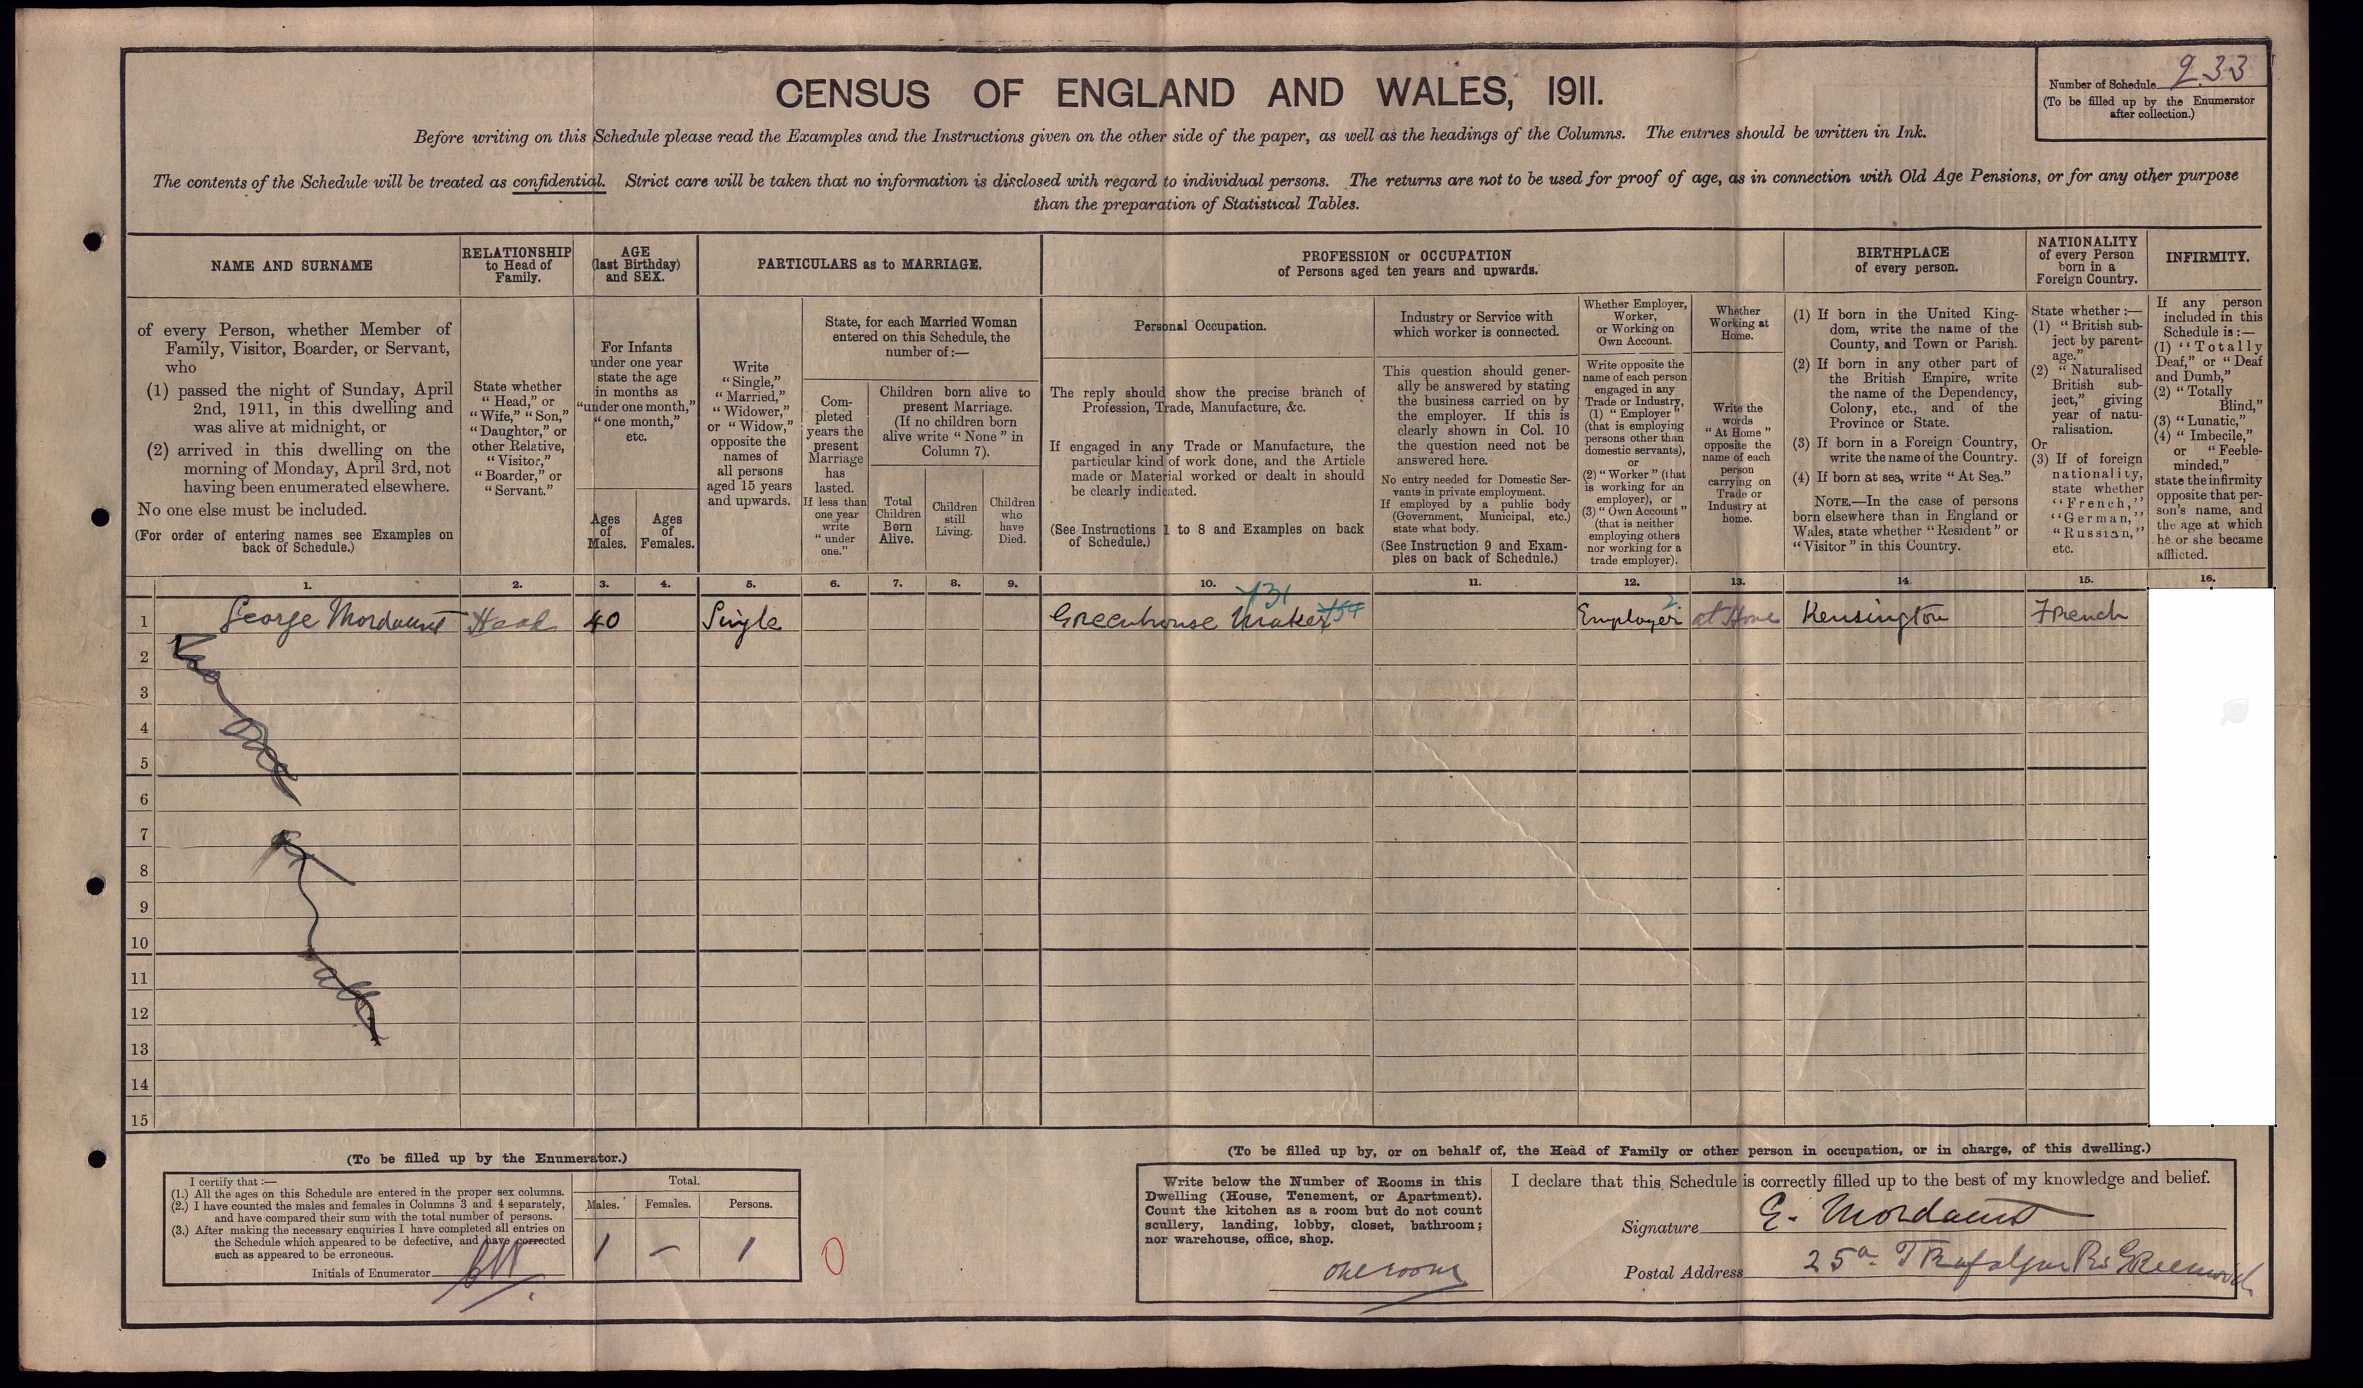 CENSUS OF ENGLAND AND WALES, 1911.
Number of Schedule 233
(To be filled up by the Enumerator
after collection.)
Before writing on this Schedule please read the Examples and the Instructions given on the other side of the paper, as well as the headings of the Columns. The entries should be written in Ink.
The contents of the Schedule will be treated as confidential. Strict care will be taken that no information is disclosed with regard to individual persons. The returns are not to be used for proof of age, as in connection with Old Age Pensions, or for any other purpose
than the preparation of Statistical Tables.
NAME AND SURNAME
of every Person, whether Member of
Family, Visitor, Boarder, or Servant,
who
(1) passed the night of Sunday, April
2nd, 1911, in this dwelling and
was alive at midnight, or
(2) arrived in this dwelling on the
morning of Monday, April 3rd, not
having been enumerated elsewhere.
No one else must be included.
(For order of entering names see Examples on
back of Schedule.)
RELATIONSHIP
to Head of
Family.
State whether
"Head," or
"Wife," "Son,"
"Daughter," or
other Relative,
"Visitor,"
"Boarder," or
"Servant."
AGE
(last Birthday)
and SEX.
For Infants
under one year
state the age
in months as
"under one month,"
"one month,"
etc.
Ages
of
Males.
Ages
of
Females.
PARTICULARS as to MARRIAGE.
Write
"Single,"
"Married,"
"Widower,"
or "Widow,"
opposite the
names of
all persons
aged 15 years
and upwards.
State, for each Married Woman
entered on this Schedule, the
number of:—
Com-
pleted
years the
present
Marriage
has
lasted.
If less than
one year
write
"under
one."
Children born alive to
present Marriage.
(If no children born
alive write "None" in
Column 7).
Total
Children
Born
Alive.
Children
still
Living.
Children
who
have
Died.
PROFESSION or OCCUPATION
of Persons aged ten years and upwards.
Personal Occupation.
The reply should show the precise branch of
Profession, Trade, Manufacture, &c.
If engaged in any Trade or Manufacture, the
particular kind of work done, and the Article
made or Material worked or dealt in should
be clearly indicated.
(See Instructions 1 to 8 and Examples on back
of Schedule.)
Industry or Service with
which worker is connected.
This question should gener-
ally be answered by stating
the business carried on by
the employer. If this is
clearly shown in Col. 10
the question need not be
answered here.
No entry needed for Domestic Ser-
vants in private employment.
If employed by a public body
(Government, Municipal, etc.)
state what body.
(See Instruction 9 and Exam-
ples on back of Schedule.)
Whether Employer,
Worker,
or Working on
Own Account.
Write opposite the
name of each person
engaged in any
Trade or Industry,
(1) "Employer"
(that is employing
persons other than
domestic servants),
or
(2) "Worker" (that
is working for an
employer), or
(3) "Own Account"
(that is neither
employing others
nor working for a
trade employer).
Whether
Working at
Home.
Write the
words
"At Home"
opposite the
name of each
person
carrying on
Trade or
Industry at
home.
BIRTHPLACE
of every person.
(1) If born in the United King-
dom, write the name of the
County, and Town or Parish.
(2) If born in any other part of
the British Empire, write
the name of the Dependency,
Colony, etc., and of the
Province or State.
(3) If born in a Foreign Country,
write the name of the Country.
(4) If born at sea, write "At Sea."
NOTE.—In the case of persons
born elsewhere than in England or
Wales, state whether "Resident" or
"Visitor" in this Country.
NATIONALITY
of every Person
born in a
Foreign Country.
State whether:—
(1) "British sub-
ject by parent-
age."
(2) "Naturalised
British sub-
ject," giving
year of natu-
ralisation.
Or
(3) If of foreign
nationality,
state whether
"French,"
"German,"
"Russian,"
etc.
INFIRMITY.
If any person
included in this
Schedule is:—
(1) "Totally
Deaf," or "Deaf
and Dumb,"
(2) "Totally
Blind,"
(3) "Lunatic,"
(4) "Imbecile,"
or "Feeble-
minded,"
state the infirmity
opposite that per-
son's name, and
the age at which
he or she became
afflicted.
1. 2. 3. 4. 5. 6. 7. 8. 9. 10. 11. 12. 13. 14. 15. 16.
431
1 George Mordaunt Head 40 Single Greenhouse Maker 454 Employer 2 at Home Kensington French
2
3
4
5
6
7
8
9
10
11
12
13
14
15
(To be filled up by the Enumerator.)
I certify that:—
(1.) All the ages on this Schedule are entered in the proper sex columns.
(2.) I have counted the males and females in Columns 3 and 4 separately,
and have compared their sum with the total number of persons.
(3.) After making the necessary enquiries I have completed all entries on
the Schedule which appeared to be defective, and have corrected
such as appeared to be erroneous.
Initials of Enumerator
Total.
Males. Females. Persons.
1 — 1
0
(To be filled up by, or on behalf of, the Head of Family or other person in occupation, or in charge, of this dwelling.)
Write below the Number of Rooms in this
Dwelling (House, Tenement, or Apartment).
Count the kitchen as a room but do not count
scullery, landing, lobby, closet, bathroom;
nor warehouse, office, shop.
one room
I declare that this Schedule is correctly filled up to the best of my knowledge and belief.
Signature E. Mordaunt
Postal Address 25a Trafalgar Rd Greenwich